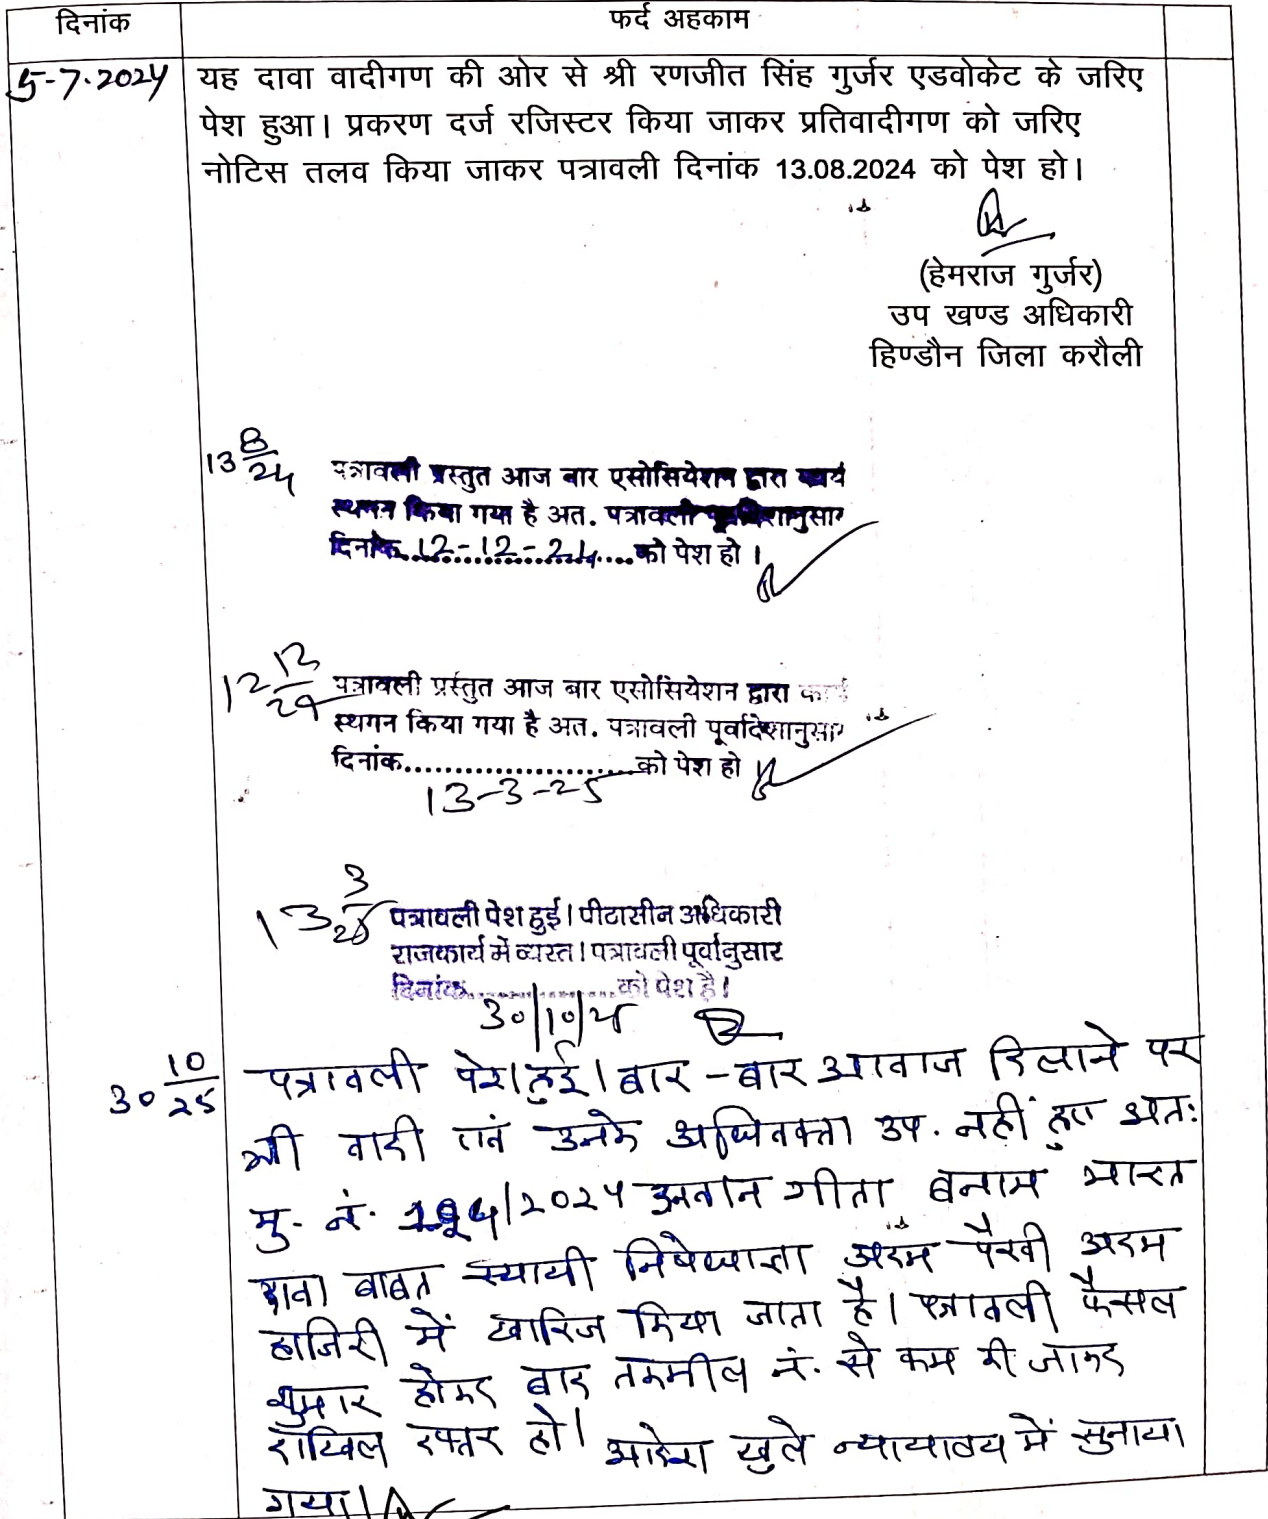 दिनांक फर्द अहकाम
5-7-2024 यह दावा वादीगण की ओर से श्री रणजीत सिंह गुर्जर एडवोकेट के जरिए
पेश हुआ। प्रकरण दर्ज रजिस्टर किया जाकर प्रतिवादीगण को जरिए
नोटिस तलव किया जाकर पत्रावली दिनांक 13.08.2024 को पेश हो।
(हेमराज गुर्जर)
उप खण्ड अधिकारी
हिण्डौन जिला करौली
13 8/24 पत्रावली प्रस्तुत आज बार एसोसियेशन द्वारा कार्य
स्थगन किया गया है अत. पत्रावली पूर्वादेशानुसार
दिनांक 12-12-24 को पेश हो।
12 12/24 पत्रावली प्रस्तुत आज बार एसोसियेशन द्वारा कार्य
स्थगन किया गया है अत. पत्रावली पूर्वादेशानुसार
दिनांक....................को पेश हो
13-3-25
13 3/25 पत्रावली पेश हुई। पीठासीन अधिकारी
राजकार्य में व्यस्त। पत्रावली पूर्वानुसार
दिनांक....................को पेश है।
30/10/25
30 10/25 पत्रावली पेश हुई। बार-बार आवाज दिलाने पर
भी वादी एवं उनके अधिवक्ता उप. नहीं हुए अतः
मु. नं. /2024 उनवान गीता बनाम भारत
दावा बाबत स्थायी निषेधाज्ञा अदम पैरवी अदम
हाजिरी में खारिज किया जाता है। पत्रावली फैसल
शुमार होकर बाद तकमील नं. से कम की जाकर
दाखिल दफ्तर हो। आदेश खुले न्यायालय में सुनाया
गया।